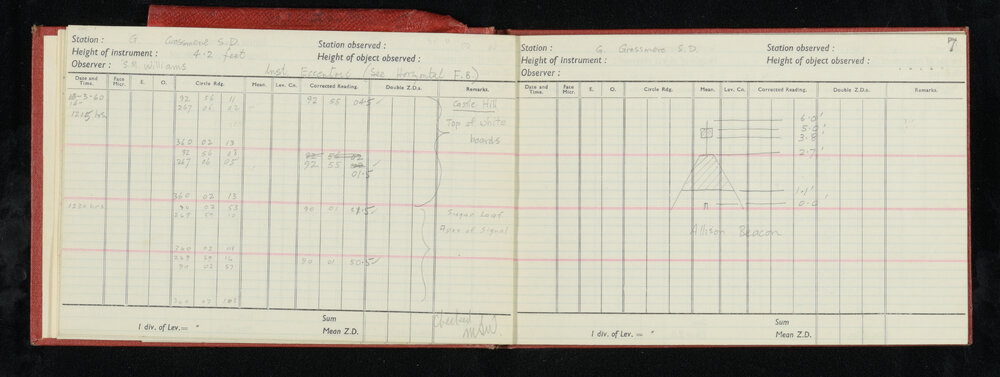 Station : G. Grassmere S.D. Station observed :
Height of instrument : 4·2 feet Height of object observed :
Observer : S.R. Williams Inst Eccentric (See Horizontal F.B.)
Date and Time. Face Micr. E. O. Circle Rdg. Mean. Lev. Cn. Corrected Reading. Double Z.D.s. Remarks.
-3-60 92 56 11 92 55 04·5 Castle Hill
267 06 02
1215 hrs. Top of white
360 02 13 boards
92 56 08 92 56 02
267 06 05 92 55
01·5
360 02 13
1230 hrs. 90 02 53 90 01 51·5 Sugar Loaf
269 59 10 Apex of Signal
360 02
269 59 16 90 01 50·5
90 02 57
360 02
Sum Checked
1 div. of Lev.= " Mean Z.D. MSW.
7
Station : G. Grassmere S.D. Station observed :
Height of instrument : Height of object observed :
Observer :
Date and Time. Face Micr. E. O. Circle Rdg. Mean. Lev. Cn. Corrected Reading. Double Z.D.s. Remarks.
6·0'
5·0'
3·8'
2·7'
1·1'
0·0'
Allison Beacon
Sum
1 div. of Lev.= " Mean Z.D.